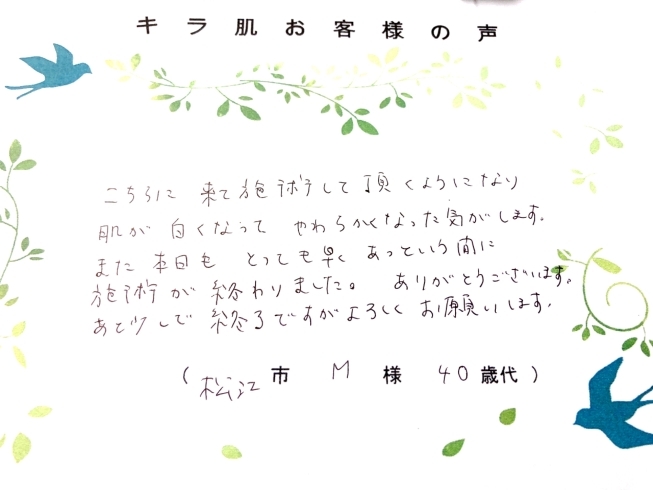 キラ肌お客様の声
こちらに 来て施術して頂くようになり
肌が 白くなって やわらかくなった気がします。
また 本日も とっても早く あっという間に
施術が 終わりました。 ありがとうございます。
あと少しで 終了ですがよろしく お願いします。
(松江市 M 様 40歳代)